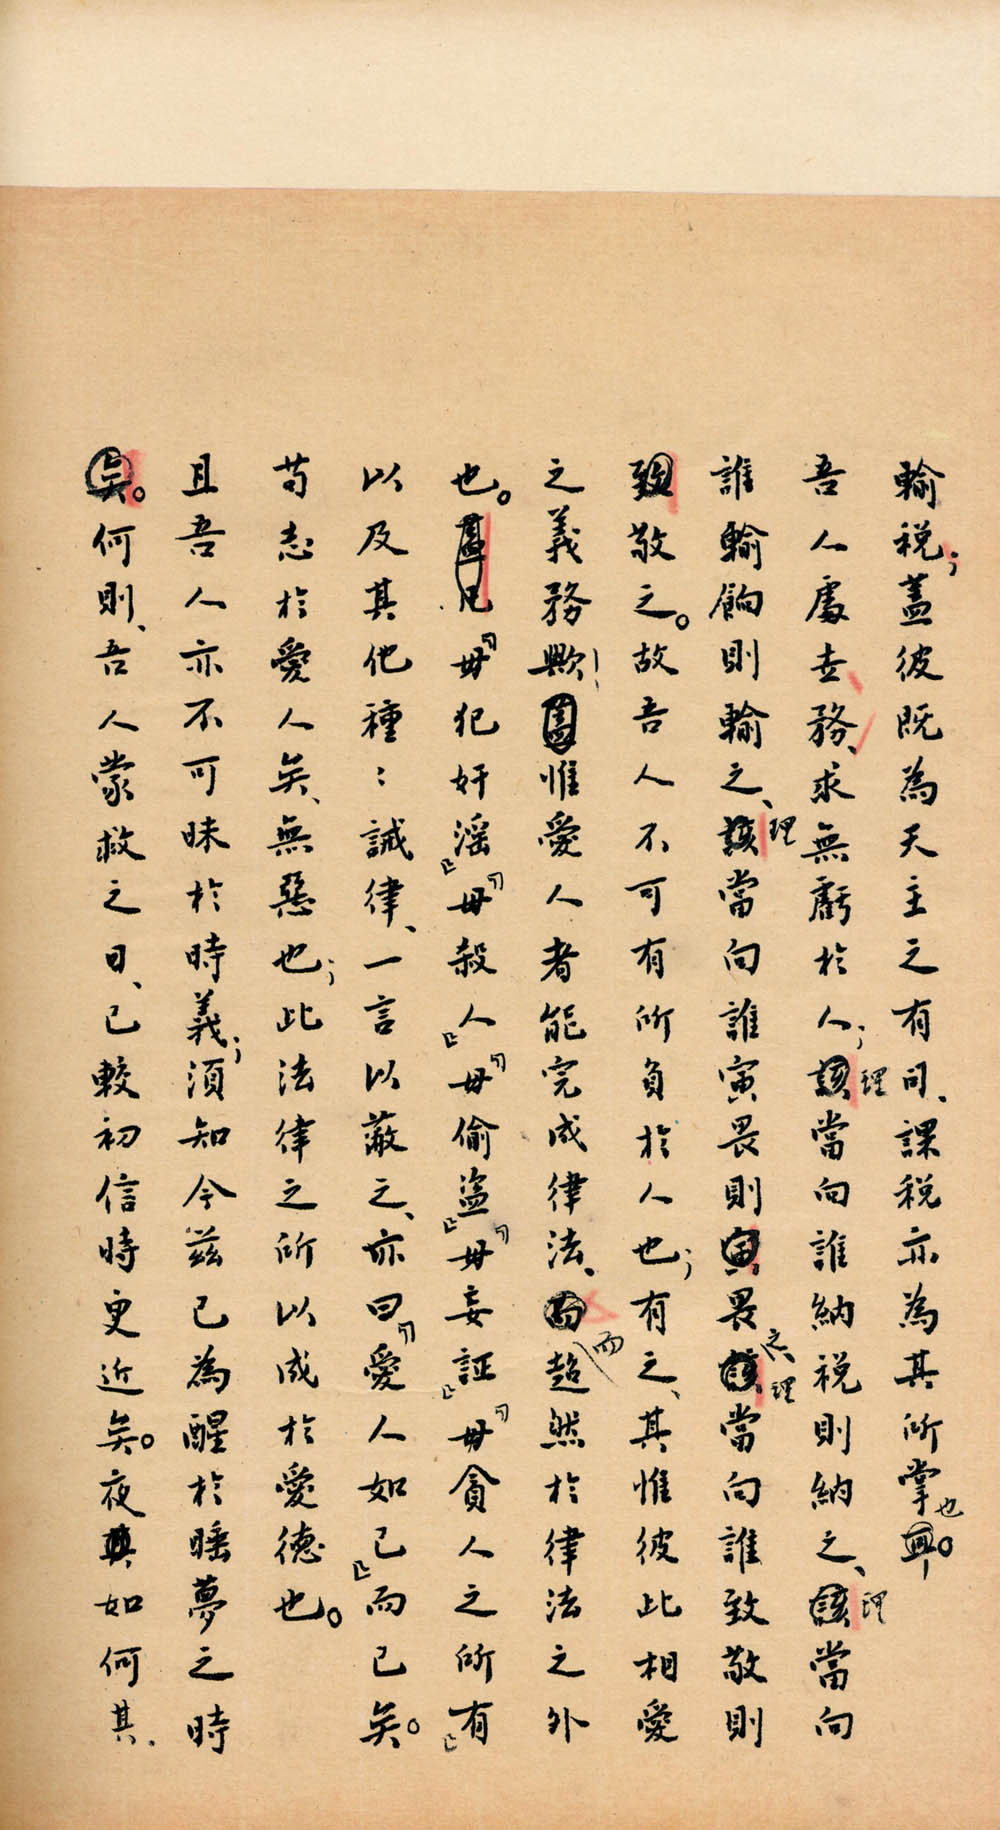 輸稅；蓋彼既為天主之有司、課稅亦為其所掌也。
吾人處世務、求無虧於人；理當向誰納稅則納之、理當向
誰輸餉則輸之、理當向誰寅畏則寅畏之、理當向誰致敬則
敬之。故吾人不可有所負於人也；有之、其惟彼此相愛
之義務歟！惟愛人者能完成律法、而超然於律法之外
也。「毋犯奸滛」「毋殺人」「毋偷盜」「毋妄証」「毋貪人之所有」
以及其他種：誡律、一言以蔽之、亦曰「愛人如己」而已矣。
苟志於愛人矣、無惡也；此法律之所以成於愛德也。
且吾人亦不可昧於時義；須知今茲已為醒於睡夢之時
矣。何則、吾人蒙救之日、已較初信時更近矣。夜如何其、